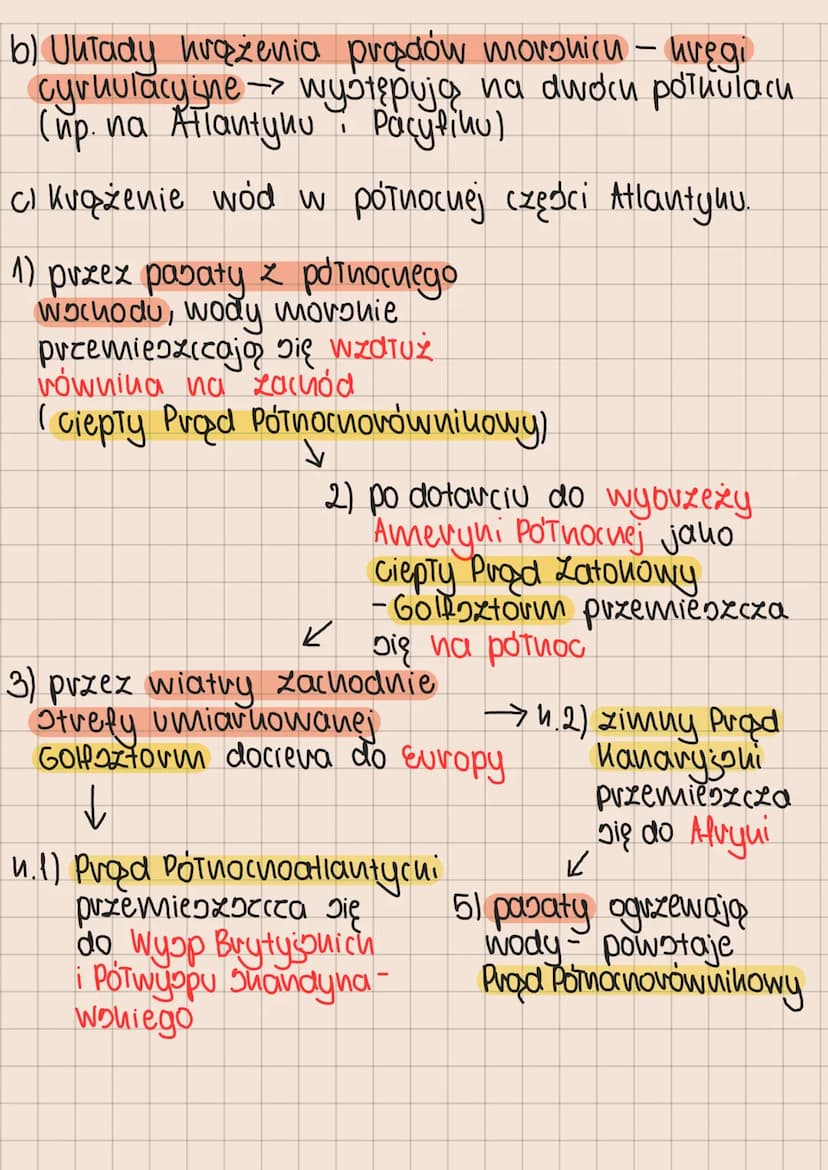 b) Układy krążenia prądów morskich - kręgi
cyrkulacyjne → występują na dwóch półkulach
(np. na Atlantyku i Pacyfiku)
c) Krążenie wód w północnej części Atlantyku.
1) przez pasaty z północnego
wschodu, wody morskie
przemieszczają się wzdłuż
równika na zachód
(ciepły Prąd Północnorównikowy)
↘
2) po dotarciu do wybrzeży
Ameryki Północnej jako
ciepły Prąd Zatokowy
- Golfsztorm przemieszcza
się na północ
↙
3) przez wiatry zachodnie
strefy umiarkowanej
Golfsztorm dociera do Europy
↓
4.1) Prąd Północnoatlantycki
przemieszszcza się
do Wysp Brytyjskich
i Półwyspu Skandyna-
wskiego
→ 4.2) zimny Prąd
Kanaryjski
przemieszcza
się do Afryki
↙
5) pasaty ogrzewają
wody - powstaje
Prąd Północnorównikowy